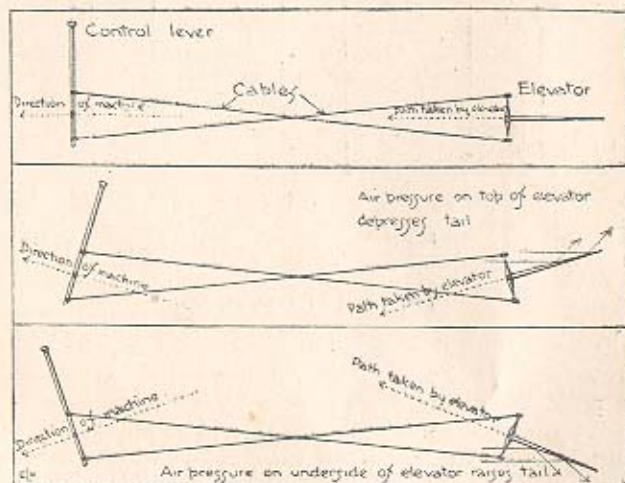 Control lever
Cables
Elevator
Direction of machine
Path taken by elevator
Air pressure on top of elevator
depresses tail
Direction of machine
Path taken by elevator
Path taken by elevator
Direction of machine
Air pressure on underside of elevator raises tail